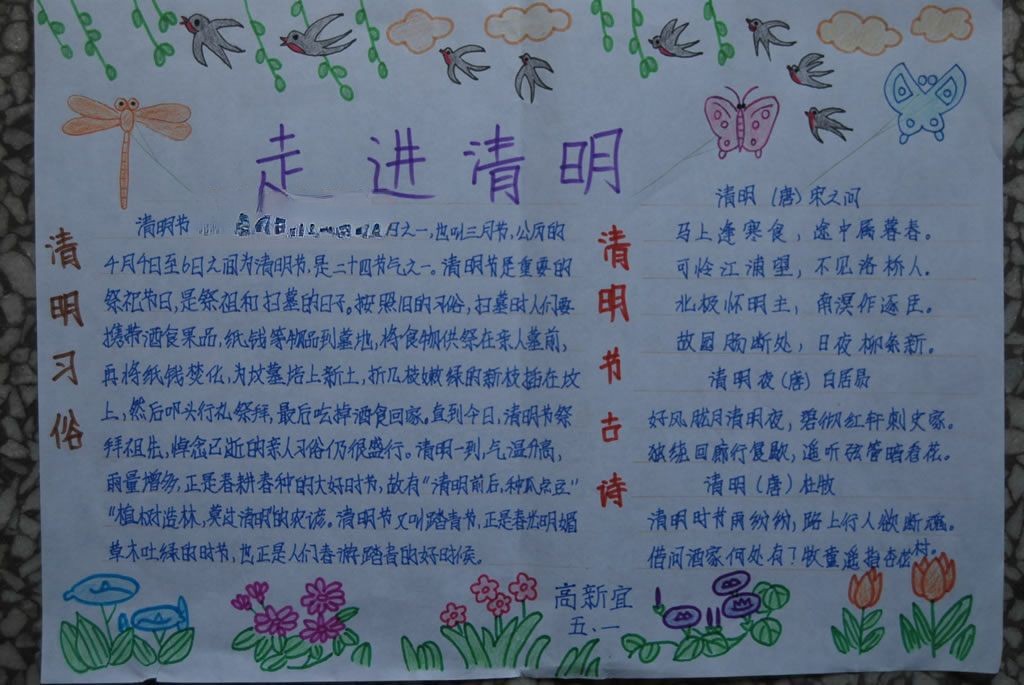 走进清明
清明习俗
清明节 月之一,也叫三月节,公历的
4月4日至6日之间为清明节,是二十四节气之一。清明节是重要的
祭祀节日,是祭祖和扫墓的日子。按照旧的习俗,扫墓时人们要
携带酒食果品,纸钱等物品到墓地,将食物供祭在亲人墓前,
再将纸钱焚化,为坟墓培上新土,折几枝嫩绿的新枝插在坟
上,然后叩头行礼祭拜,最后吃掉酒食回家。直到今日,清明节祭
拜祖先,悼念已逝的亲人习俗仍很盛行。清明一到,气温升高,
雨量增多,正是春耕春种的大好时节,故有“清明前后,种瓜点豆”
“植树造林,莫过清明”的农谚。清明节又叫踏青节,正是春光明媚
草木吐绿的时节,也正是人们春游踏青的好时候。
清明节古诗
清明(唐)宋之问
马上逢寒食,途中属暮春。
可怜江浦望,不见洛桥人。
北极怀明主,南溟作逐臣。
故园肠断处,日夜柳条新。
清明夜(唐)白居易
好风胧月清明夜,碧砌红轩刺史家。
独绕回廊行复歇,遥听弦管暗看花。
清明(唐)杜牧
清明时节雨纷纷,路上行人欲断魂。
借问酒家何处有?牧童遥指杏花村。
高新宜
五.一